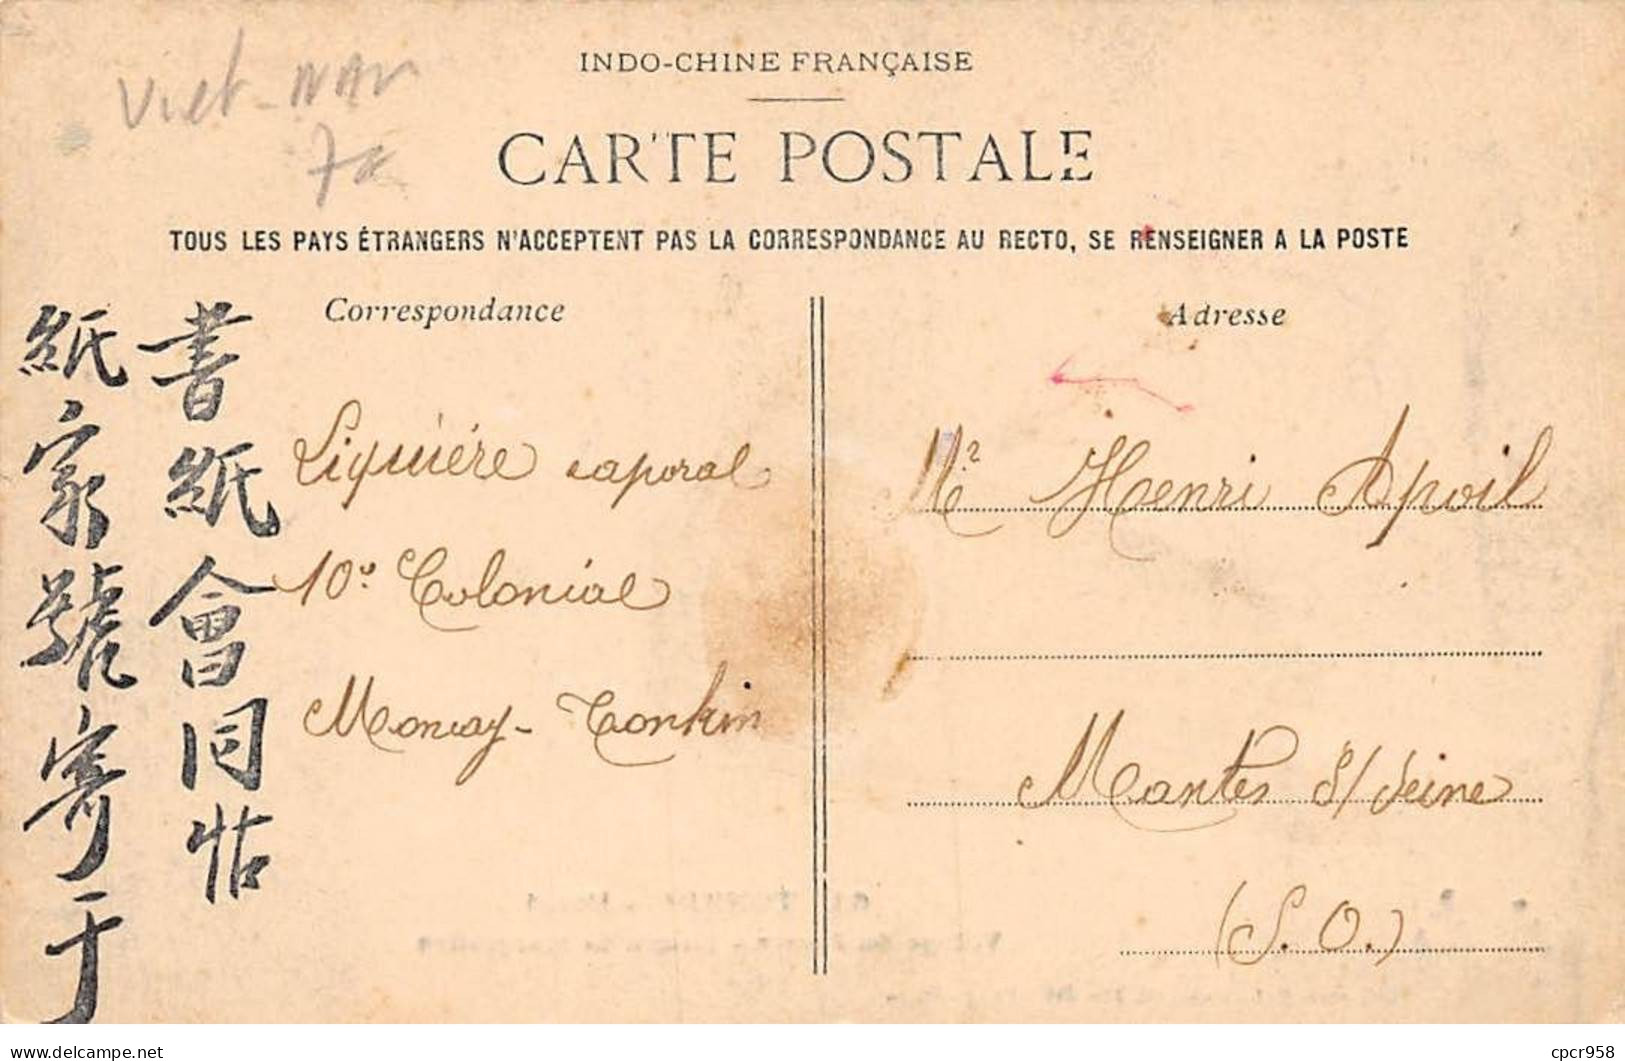 Viet-Nam
7€
INDO-CHINE FRANÇAISE
CARTE POSTALE
TOUS LES PAYS ÉTRANGERS N'ACCEPTENT PAS LA CORRESPONDANCE AU RECTO, SE RENSEIGNER A LA POSTE
Correspondance
Adresse
書紙會同帖
紙家號寄于
Liquière caporal
10e Colonial
Moncay - Tonkin
Mr Henri Apvil
Mantes s/ Seine
(S. O.)
delcampe.net
cpcr958